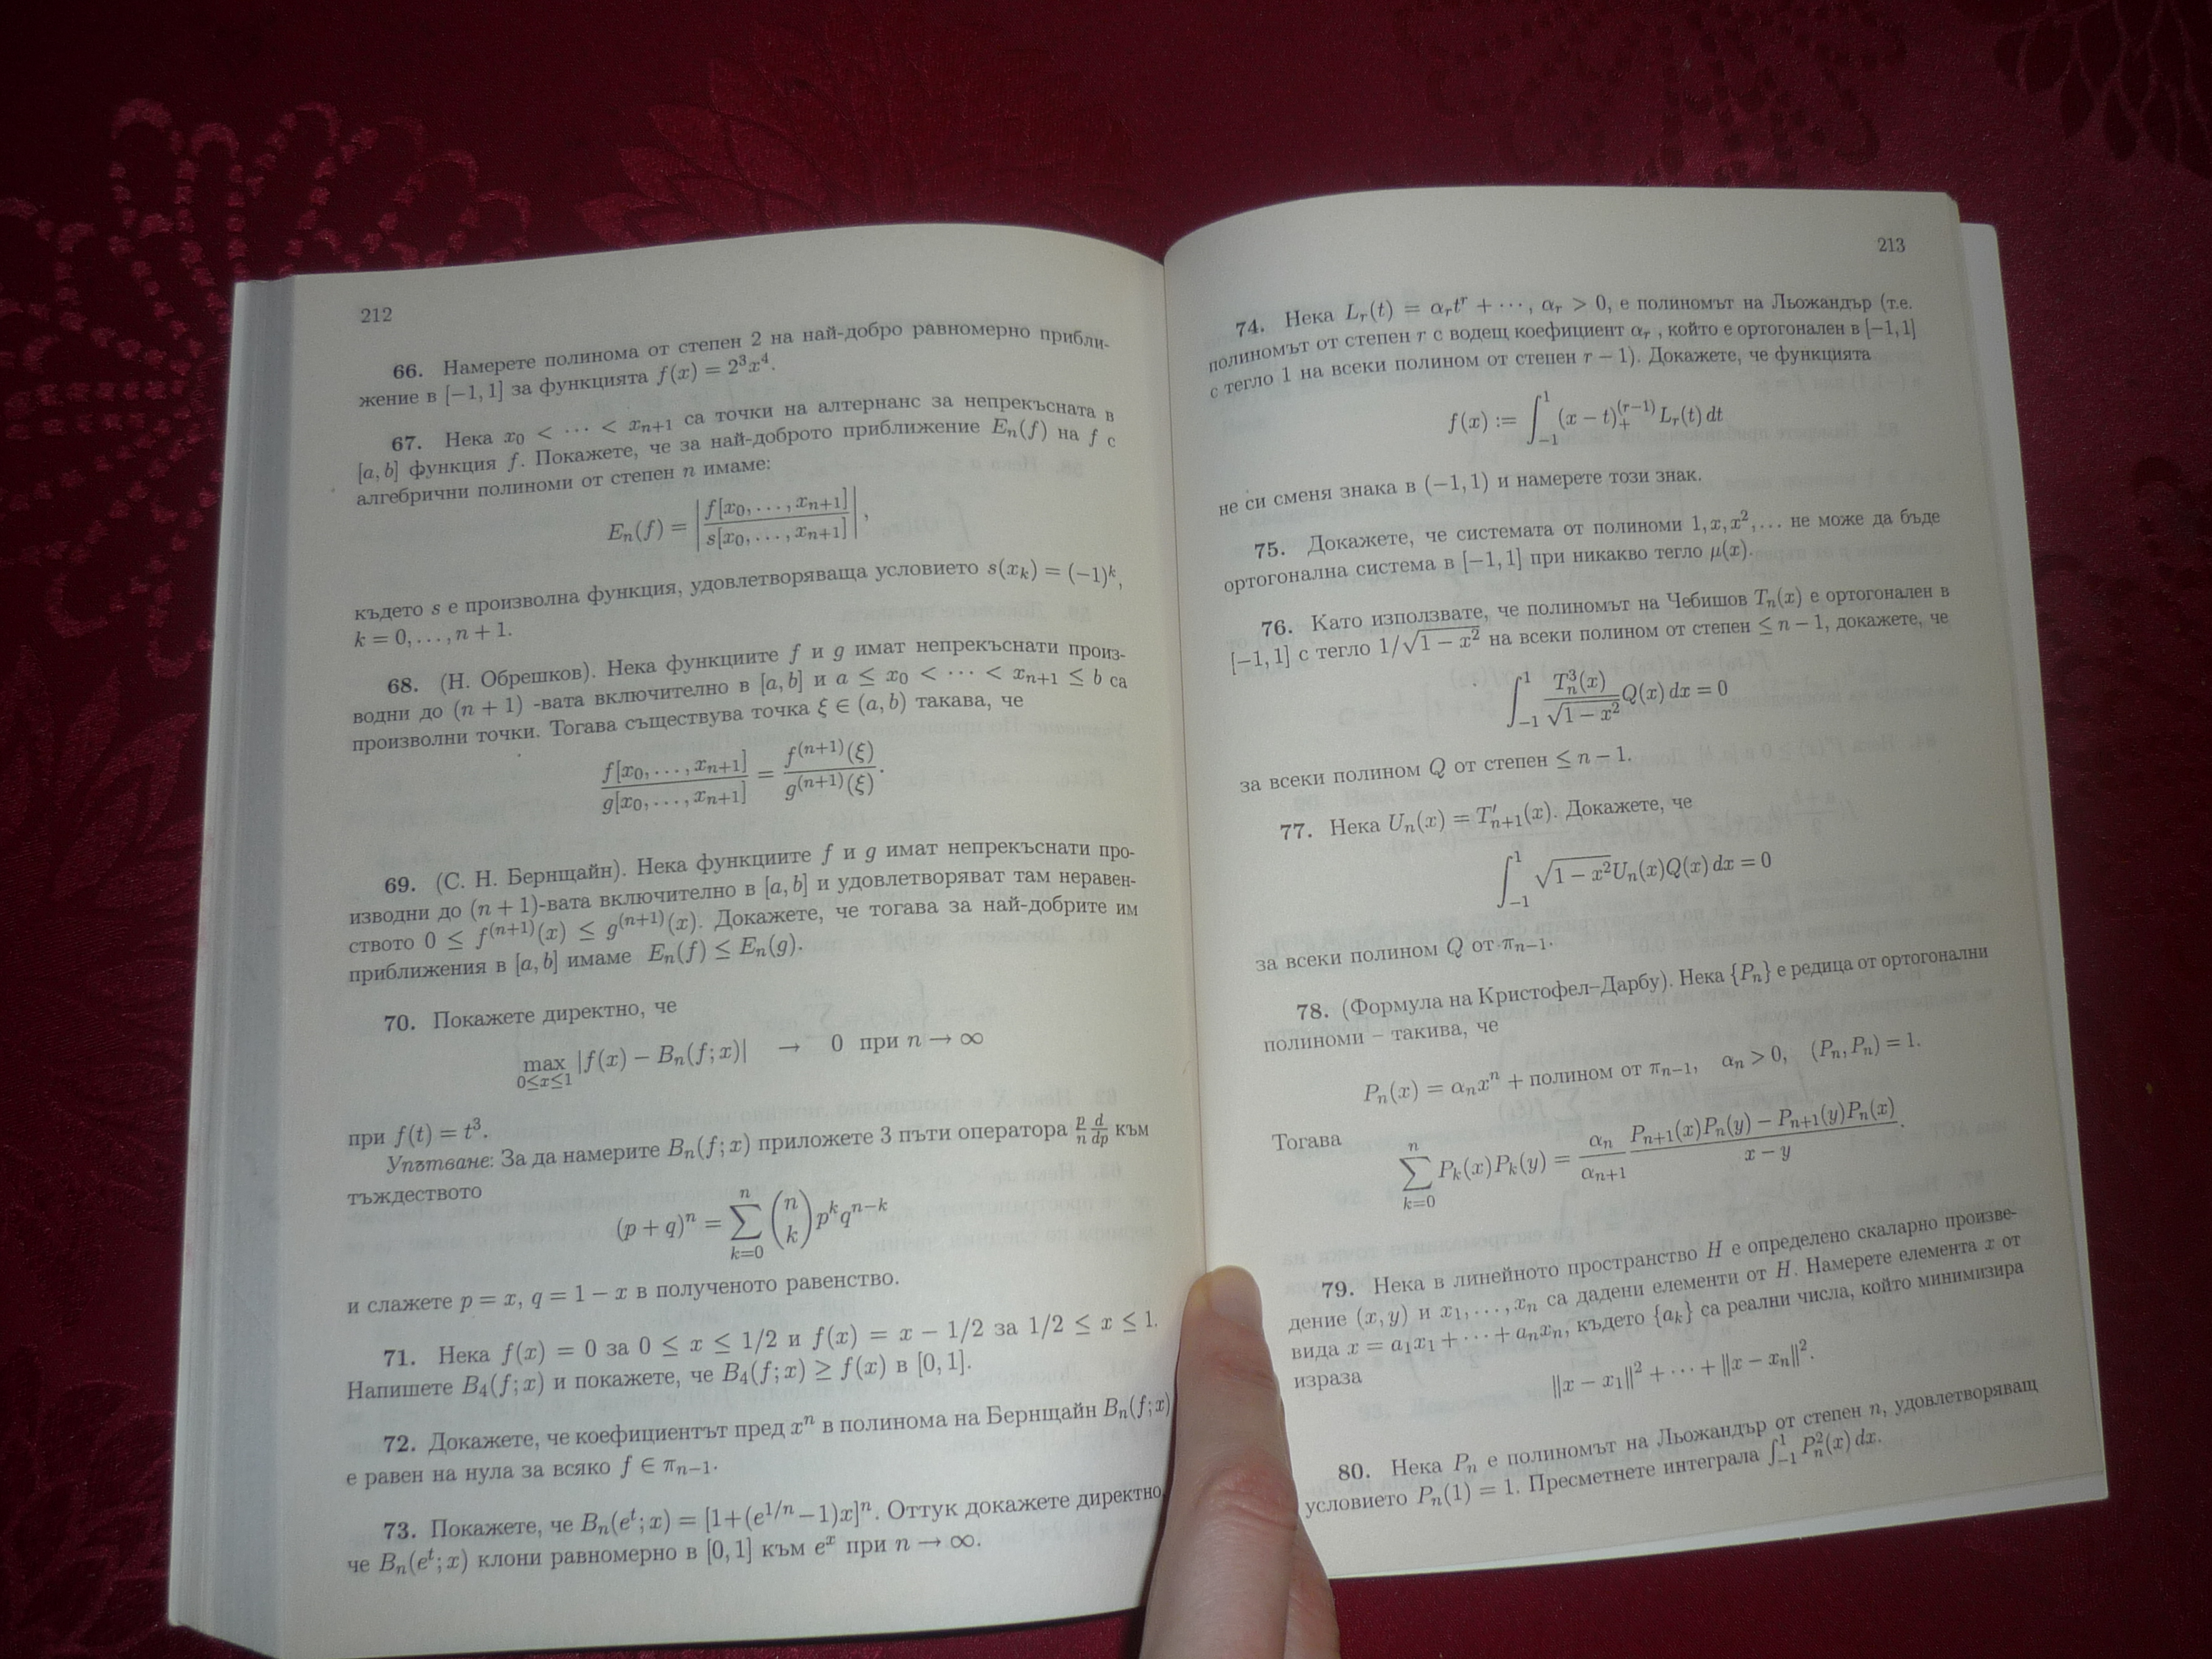 212
66. Намерете полинома от степен 2 на най-добро равномерно прибли-
жение в [−1, 1] за функцията f(x) = 2³x⁴.
67. Нека x₀ < ··· < xₙ₊₁ са точки на алтернанс за непрекъсната в
[a, b] функция f. Покажете, че за най-доброто приближение Eₙ(f) на f с
алгебрични полиноми от степен n имаме:
Eₙ(f) = | f[x₀, . . . , xₙ₊₁] / s[x₀, . . . , xₙ₊₁] | ,
където s е произволна функция, удовлетворяваща условието s(xₖ) = (−1)ᵏ,
k = 0, . . . , n + 1.
68. (Н. Обрешков). Нека функциите f и g имат непрекъснати произ-
водни до (n + 1) -вата включително в [a, b] и a ≤ x₀ < ··· < xₙ₊₁ ≤ b са
произволни точки. Тогава съществува точка ξ ∈ (a, b) такава, че
f[x₀, . . . , xₙ₊₁] / g[x₀, . . . , xₙ₊₁] = f⁽ⁿ⁺¹⁾(ξ) / g⁽ⁿ⁺¹⁾(ξ).
69. (С. Н. Бернщайн). Нека функциите f и g имат непрекъснати про-
изводни до (n + 1)-вата включително в [a, b] и удовлетворяват там неравен-
ството 0 ≤ f⁽ⁿ⁺¹⁾(x) ≤ g⁽ⁿ⁺¹⁾(x). Докажете, че тогава за най-добрите им
приближения в [a, b] имаме Eₙ(f) ≤ Eₙ(g).
70. Покажете директно, че
max 0≤x≤1 |f(x) − Bₙ(f; x)| → 0 при n → ∞
при f(t) = t³.
Упътване: За да намерите Bₙ(f; x) приложете 3 пъти оператора p/n d/dp към
тъждеството
(p + q)ⁿ = ∑ₖ₌₀ⁿ (n k) pᵏqⁿ⁻ᵏ
и слажете p = x, q = 1 − x в полученото равенство.
71. Нека f(x) = 0 за 0 ≤ x ≤ 1/2 и f(x) = x − 1/2 за 1/2 ≤ x ≤ 1.
Напишете B₄(f; x) и покажете, че B₄(f; x) ≥ f(x) в [0, 1].
72. Докажете, че коефициентът пред xⁿ в полинома на Бернщайн Bₙ(f; x)
е равен на нула за всяко f ∈ πₙ₋₁.
73. Покажете, че Bₙ(eᵗ; x) = [1+(e¹/ⁿ −1)x]ⁿ. Оттук докажете директно,
че Bₙ(eᵗ; x) клони равномерно в [0, 1] към eˣ при n → ∞.
213
74. Нека Lᵣ(t) = αᵣtʳ + ··· , αᵣ > 0, е полиномът на Льожандър (т.е.
полиномът от степен r с водещ коефициент αᵣ , който е ортогонален в [−1, 1]
с тегло 1 на всеки полином от степен r − 1). Докажете, че функцията
f(x) := ∫₋₁¹ (x − t)₊⁽ʳ⁻¹⁾ Lᵣ(t) dt
не си сменя знака в (−1, 1) и намерете този знак.
75. Докажете, че системата от полиноми 1, x, x², . . . не може да бъде
ортогонална система в [−1, 1] при никакво тегло μ(x).
76. Като използвате, че полиномът на Чебишов Tₙ(x) е ортогонален в
[−1, 1] с тегло 1/√(1 − x²) на всеки полином от степен ≤ n − 1, докажете, че
∫₋₁¹ Tₙ³(x) / √(1 − x²) Q(x) dx = 0
за всеки полином Q от степен ≤ n − 1.
77. Нека Uₙ(x) = T′ₙ₊₁(x). Докажете, че
∫₋₁¹ √(1 − x²) Uₙ(x)Q(x) dx = 0
за всеки полином Q от πₙ₋₁.
78. (Формула на Кристофел–Дарбу). Нека {Pₙ} е редица от ортогонални
полиноми – такива, че
Pₙ(x) = αₙxⁿ + полином от πₙ₋₁, αₙ > 0, (Pₙ, Pₙ) = 1.
Тогава
∑ₖ₌₀ⁿ Pₖ(x)Pₖ(y) = αₙ / αₙ₊₁ (Pₙ₊₁(x)Pₙ(y) − Pₙ₊₁(y)Pₙ(x)) / (x − y).
79. Нека в линейното пространство H е определено скаларно произве-
дение (x, y) и x₁, . . . , xₙ са дадени елементи от H. Намерете елемента x от
вида x = a₁x₁ + ··· + aₙxₙ, където {aₖ} са реални числа, който минимизира
израза
‖x − x₁‖² + ··· + ‖x − xₙ‖².
80. Нека Pₙ е полиномът на Льожандър от степен n, удовлетворяващ
условието Pₙ(1) = 1. Пресметнете интеграла ∫₋₁¹ Pₙ²(x) dx.